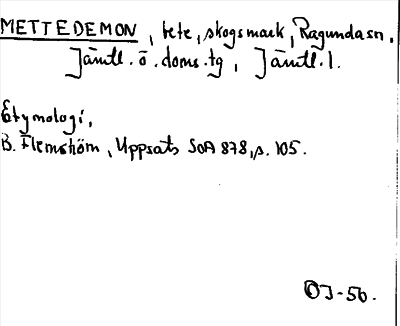 METTEDEMON, bete, skogsmark, Ragundasn,
Jämtl. ö. doms.tg, Jämtl. l.
Etymologi,
B. Flemström, Uppsats SOA 878, s. 105.
OJ-56.